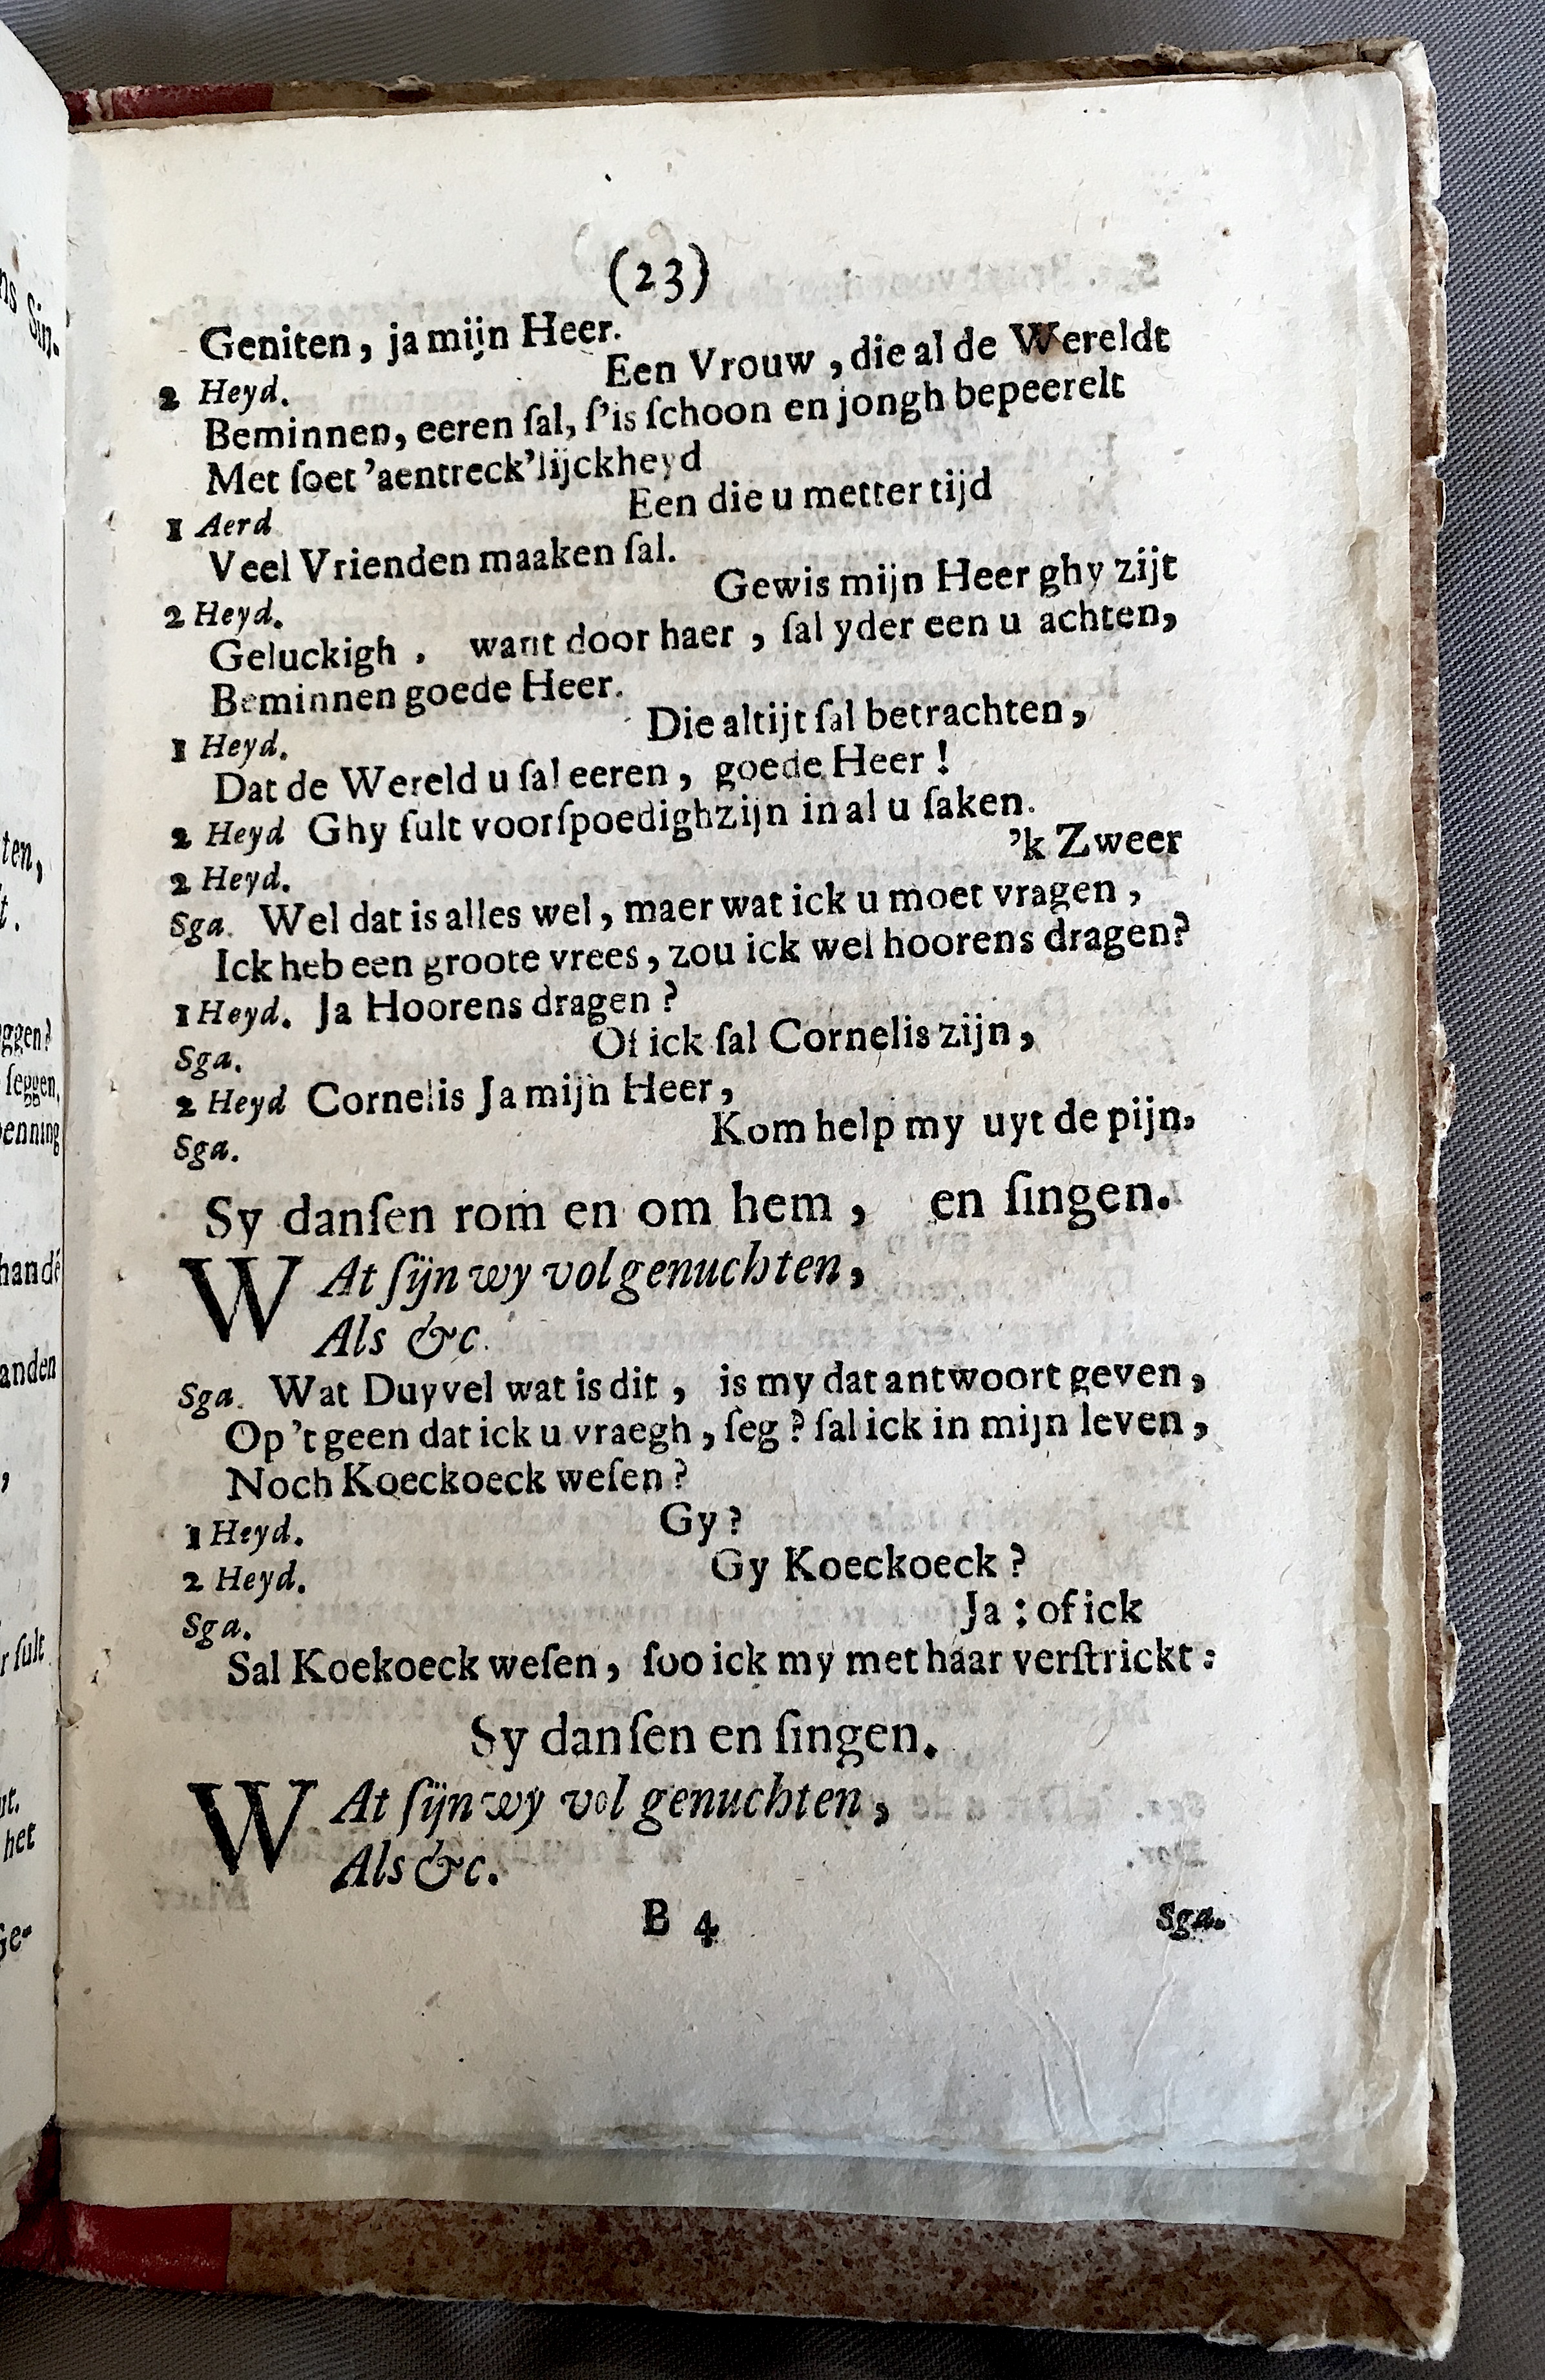 (23)
Geniten, ja mijn Heer.
2 Heyd. Een Vrouw, die al de Wereldt
Beminnen, eeren ſal, ſ'is ſchoon en jongh bepeerelt
Met ſoet 'aentreck'lijckheyd
1 Aerd Een die u metter tijd
Veel Vrienden maaken ſal.
2 Heyd. Gewis mijn Heer ghy zijt
Geluckigh. want door haer, ſal yder een u achten,
Beminnen goede Heer.
1 Heyd. Die altijt ſal betrachten,
Dat de Wereld u ſal eeren, goede Heer!
2 Heyd Ghy ſult voorſpoedigh zijn in al u ſaken.
2 Heyd. 'k Zweer
Sga. Wel dat is alles wel, maer wat ick u moet vragen,
Ick heb een groote vrees, zou ick wel hoorens dragen?
1 Heyd. Ja Hoorens dragen?
Sga. Of ick ſal Cornelis zijn,
2 Heyd Cornelis Ja mijn Heer,
Sga. Kom help my uyt de pijn,
Sy danſen rom en om hem, en ſingen.
WAt ſijn wy vol genuchten,
Als &c.
Sga. Wat Duyvel wat is dit, is my dat antwoort geven,
Op 't geen dat ick u vraegh, ſeg? ſal ick in mijn leven,
Noch Koeckoeck weſen?
1 Heyd. Gy?
2 Heyd. Gy Koeckoeck?
Sga. Ja; of ick
Sal Koekoeck weſen, ſoo ick my met haar verſtrickt:
Sy danſen en ſingen.
WAt ſijn wy vol genuchten,
Als &c.
B 4 Sga.